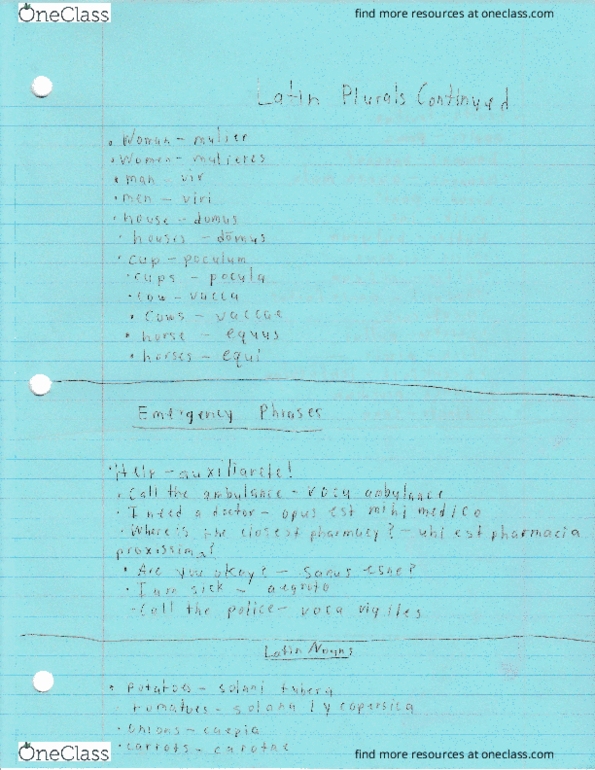 OneClass
find more resources at oneclass.com
Latin Plurals Continued
• Woman - mulier
• Women - mulieres
• man - vir
• men - viri
• house - domus
• houses - domus
• cup - poculum
• cups - pocula
• cow - vacca
• cows - vaccae
• horse - equus
• horses - equi
Emergency Phrases
• Help - auxiliarete!
• Call the ambulance - voca ambulance
• I need a doctor - opus est mihi medico
• Where is the closest pharmacy? - ubi est pharmacia
proxissima?
• Are you okay? - Sanus esne?
• I am sick - aegroto
• Call the police - voca vigiles
Latin Nouns
• Potatoes - solani tubera
• tomatoes - solana lycopersica
• Onions - caepia
• carrots - carotae
OneClass
find more resources at oneclass.com